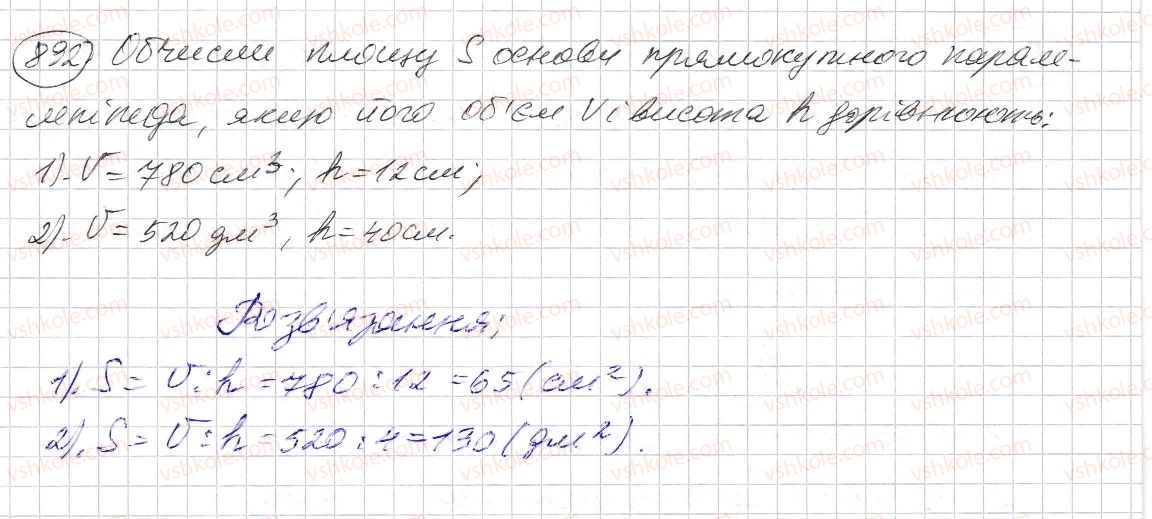 892) Обчисли площу S основи прямокутного парале-
лепіпеда, якщо його об'єм V і висота h дорівнюють:
1). V = 780 см³; h = 12 см;
2). V = 520 дм³, h = 40 см.
Розв'язання;
1). S = V : h = 780 : 12 = 65 (см²).
2). S = V : h = 520 : 4 = 130 (дм²).